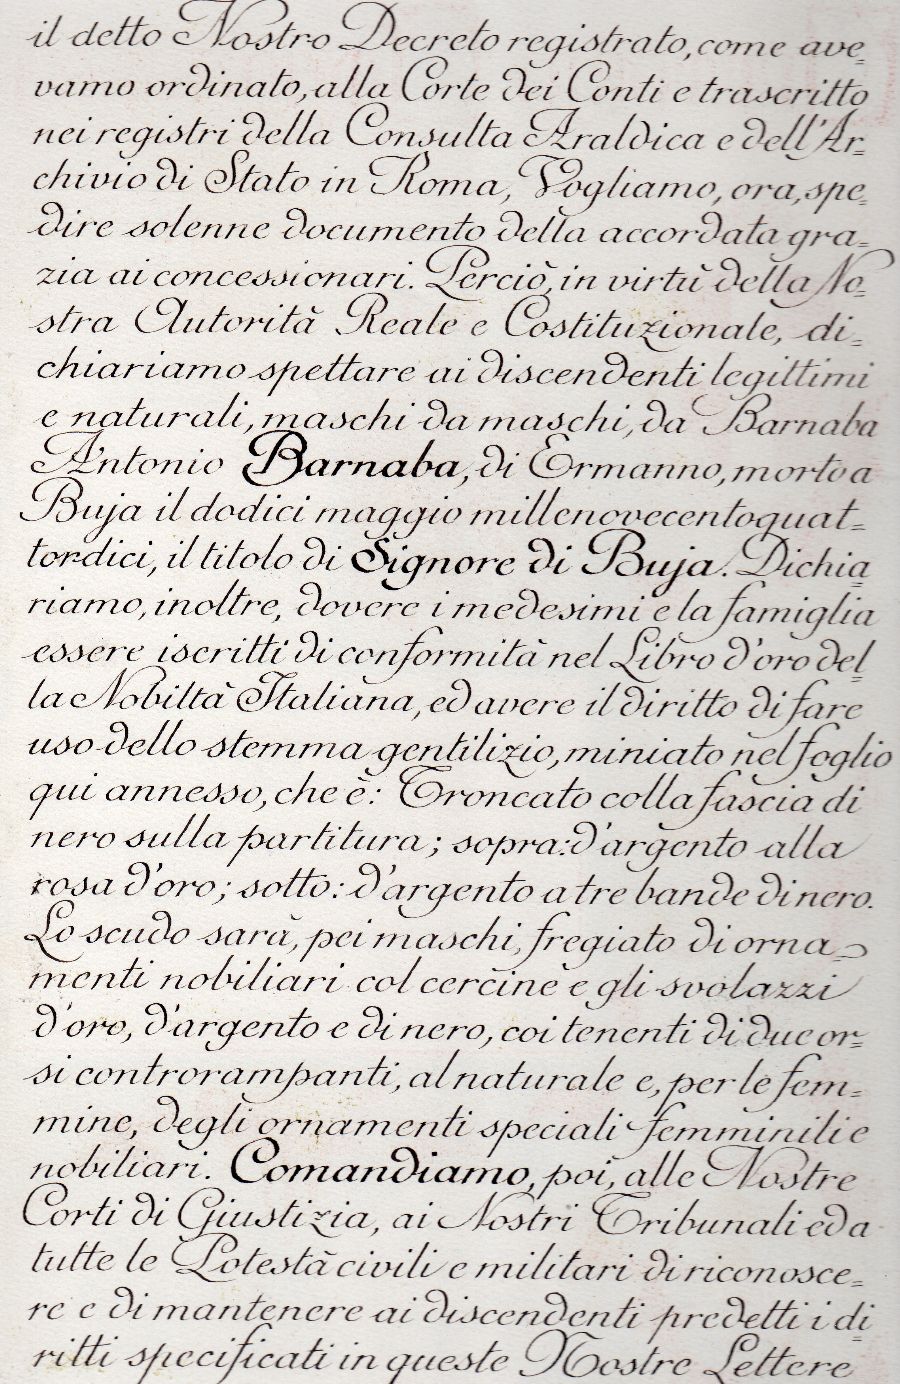 il detto Nostro Decreto registrato, come ave=
vamo ordinato, alla Corte dei Conti e trascritto
nei registri della Consulta Araldica e dell'Ar=
chivio di Stato in Roma, Vogliamo, ora, spe=
dire solenne documento della accordata gra=
zia ai concessionari. Perciò, in virtù della No=
stra Autorità Reale e Costituzionale, di=
chiariamo spettare ai discendenti legittimi
e naturali, maschi da maschi, da Barnaba
Antonio Barnaba, di Ermanno, morto a
Buja il dodici maggio millenovecentoquat=
tordici, il titolo di Signore di Buja. Dichia
riamo, inoltre, dovere i medesimi e la famiglia
essere iscritti di conformità nel Libro d'oro del
la Nobiltà Italiana, ed avere il diritto di fare
uso dello stemma gentilizio, miniato nel foglio
qui annesso, che è: Troncato colla fascia di
nero sulla partitura; sopra: d'argento alla
rosa d'oro; sotto: d'argento a tre bande di nero.
Lo scudo sarà, pei maschi, fregiato di orna=
menti nobiliari col cercine e gli svolazzi
d'oro, d'argento e di nero, coi tenenti di due or=
si controrampanti, al naturale e, per le fem=
mine, degli ornamenti speciali femminili e
nobiliari. Comandiamo, poi, alle Nostre
Corti di Giustizia, ai Nostri Tribunali ed a
tutte le Potestà civili e militari di riconosce=
re e di mantenere ai discendenti predetti i di
ritti specificati in queste Nostre Lettere